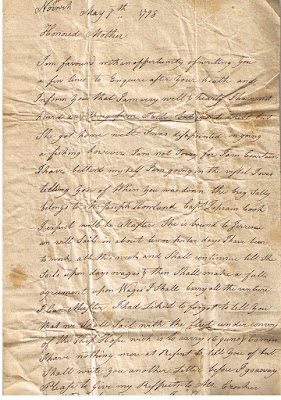 Norwich May 7th 1798
Honored Mother
I am favour'd with an opportunity of writing You
a few lines to Enquire after Your health and
Inform You that I am very well & hearty I was
heard a
She got home well I was disappointed in going
a fishing however I am not Sorry for I am
I have betterd my self I am going in the
telling You of When You was down the brig Sally
belongs to Mr Joseph Howland Capt Ephraim Cook
I expect will be Master She is bound to
an will Sail in about ten or twelve days I have been
to work all this week and Shall continue till She
Sails upon days wages & then Shall make a full
agreement upon Wages I Shall Carry all the venture
I Can Master I had Liked to forgot to tell You
that we Shall Sail with the fleet under convoy
of the Ship Hope wich is to carry
I have nothing more at Present to tell You of but
Shall write You another Letter before I go away
Please to Give my Respects to Mr